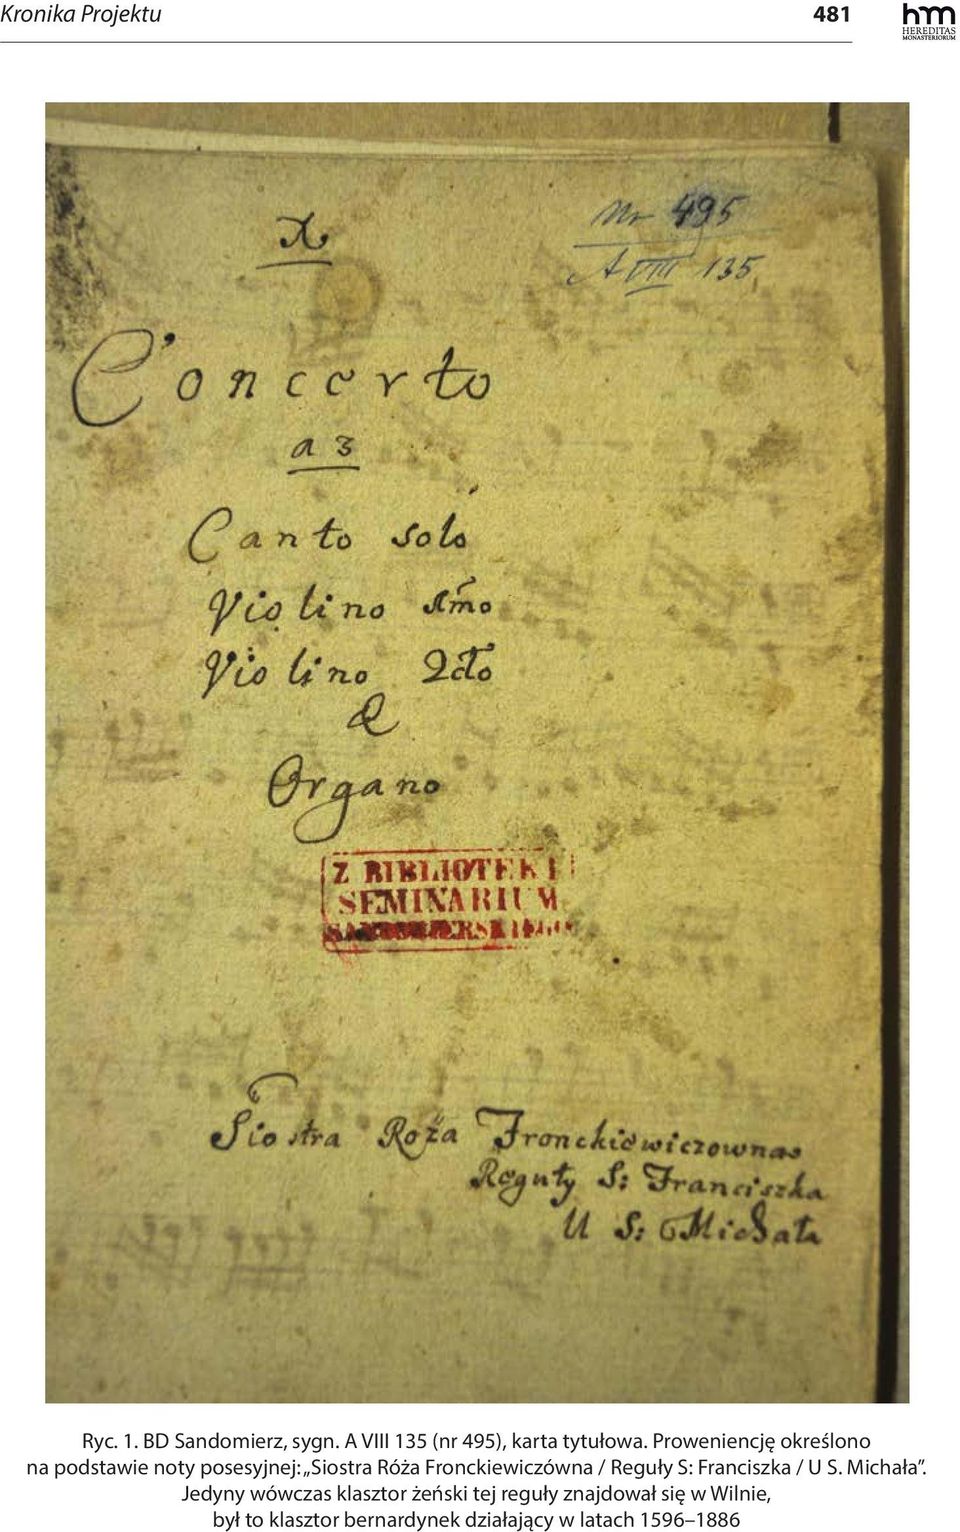 Kronika Projektu 481
hm
HEREDITAS
MONASTERIORUM
X
Nr 495
A VIII 135
Concerto
a 3
Canto solo
Violino 1mo
Violino 2do
&
Organo
Z BIBLIOTEKI
SEMINARIUM
SANDOMIERSKIEGO
Siostra Roża Fronckiewiczowna
Reguły S: Franciszka
U S: Michała
Ryc. 1. BD Sandomierz, sygn. A VIII 135 (nr 495), karta tytułowa. Proweniencję określono
na podstawie noty posesyjnej: „Siostra Róża Fronckiewiczówna / Reguły S: Franciszka / U S. Michała”.
Jedyny wówczas klasztor żeński tej reguły znajdował się w Wilnie,
był to klasztor bernardynek działający w latach 1596–1886